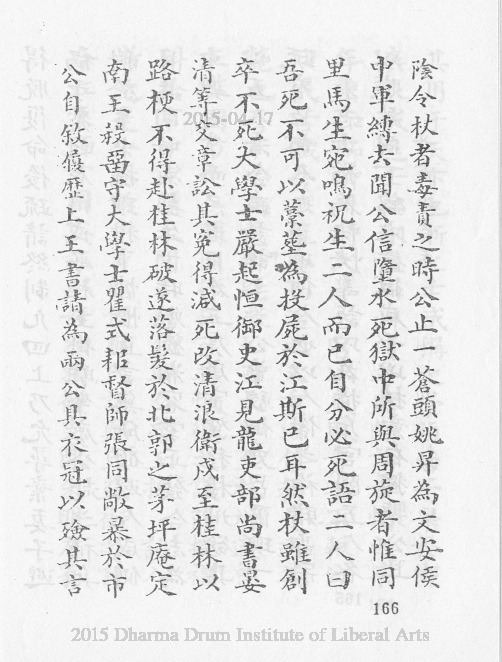 陰令杖者毒責之時公止一蒼頭姚昇為文安侯
中軍縛去聞公信墮水死獄中所與周旋者惟同
里馬生宛鳴祝生二人而已自分必死語二人曰
吾死不可以藁塟為投屍於江斯已耳然杖雖創
卒不死大學士嚴起恒御史江見龍吏部尚書晏
清等交章訟其寃得減死改清浪衛戍至桂林以
路梗不得赴桂林破遂落髮於北郭之茅坪庵定
南王殺留守大學士瞿式耜督師張同敞暴於市
公自敘履歷上王書請為兩公具衣冠以殮其言
166
2015-04-17
2015 Dharma Drum Institute of Liberal Arts